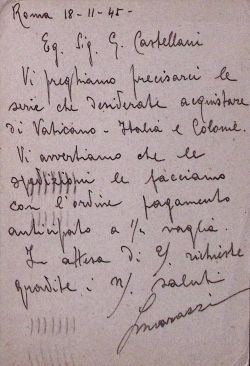 Roma 18-11-45-
Eg. Sig. G. Castellani
Vi preghiamo precisarci le
serie che desiderate acquistare
di Vaticano - Italia e Colonie.
Vi avvertiamo che le
spedizioni le facciamo
con l'ordine pagamento
anticipato a ½ vaglia.
In attesa di V/ richieste
gradite i n/ saluti